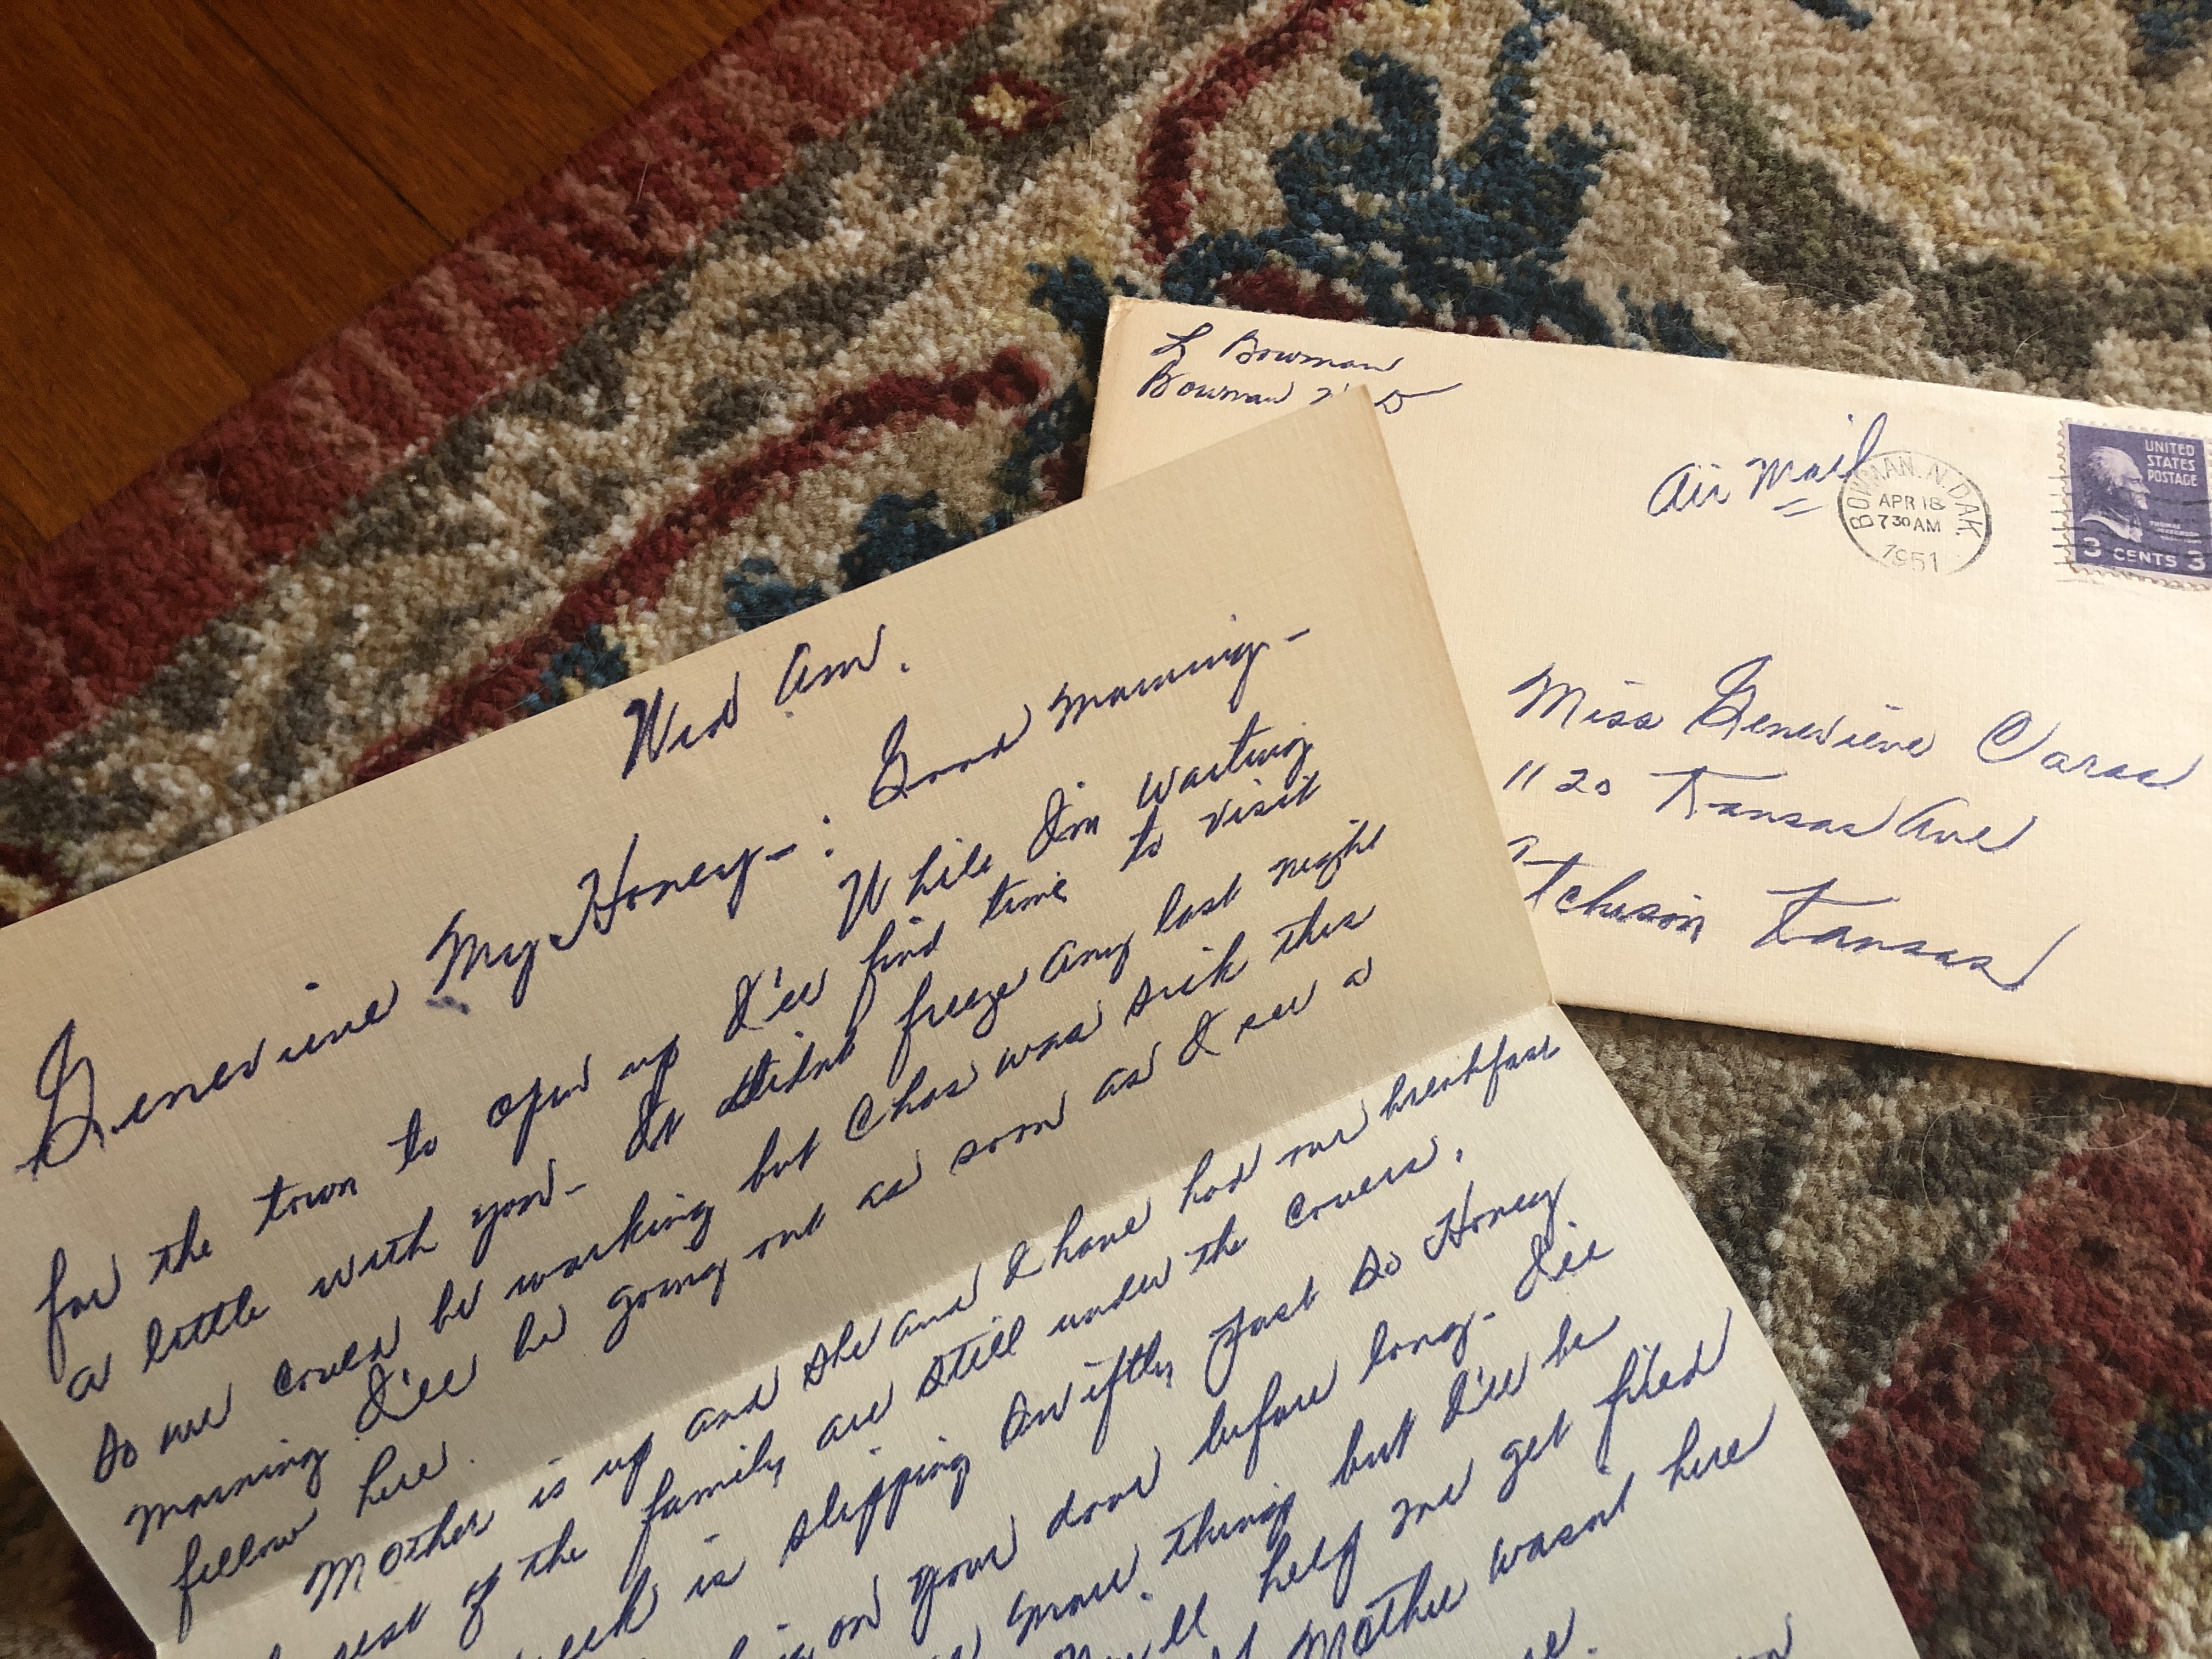 L Bowman
Bowman N D
Air Mail
BOWMAN. N. DAK.
APR 18
7 30 AM
1951
UNITED
STATES
POSTAGE
THOMAS
JEFFERSON
3 CENTS 3
Miss Genevieve Caras
1120 Kansas Ave
Atchison Kansas
Wed Am.
Genevieve My Honey-: Good Morning-
While I'm waiting
for the town to open up I'll find time to visit
a little with you- It didnt freeze any last night
so we could be working but Chas was sick this
morning I'll be going out as soon as I see a
fellow here.
Mother is up and she and I have had our breakfast
rest of the family are still under the covers.
week is slipping swiftly past so Honey
on your door before long. I've
more thing but I'll be
help me get fixed
Mother wasnt here